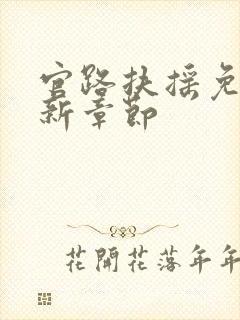 官路扶摇免
新章节
花開花落年年